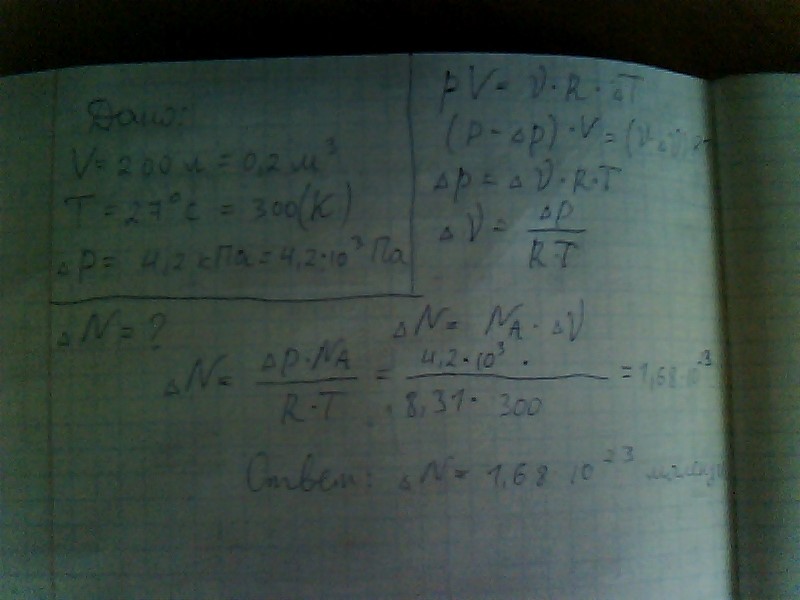 Дано:
V = 200 л = 0,2 м³
T = 27°C = 300(K)
ΔP = 4,2 кПа = 4,2·10³ Па
ΔN = ?
pV = ν·R·ΔT
(p - Δp)·V = (ν-Δν)
Δp = Δν·R·T
Δν = Δp / R·T
ΔN = N_A · Δν
ΔN = Δp·N_A / R·T = 4,2·10³ · / 8,31 · 300 = 1,68·10²³
Ответ: ΔN = 1,68 10²³